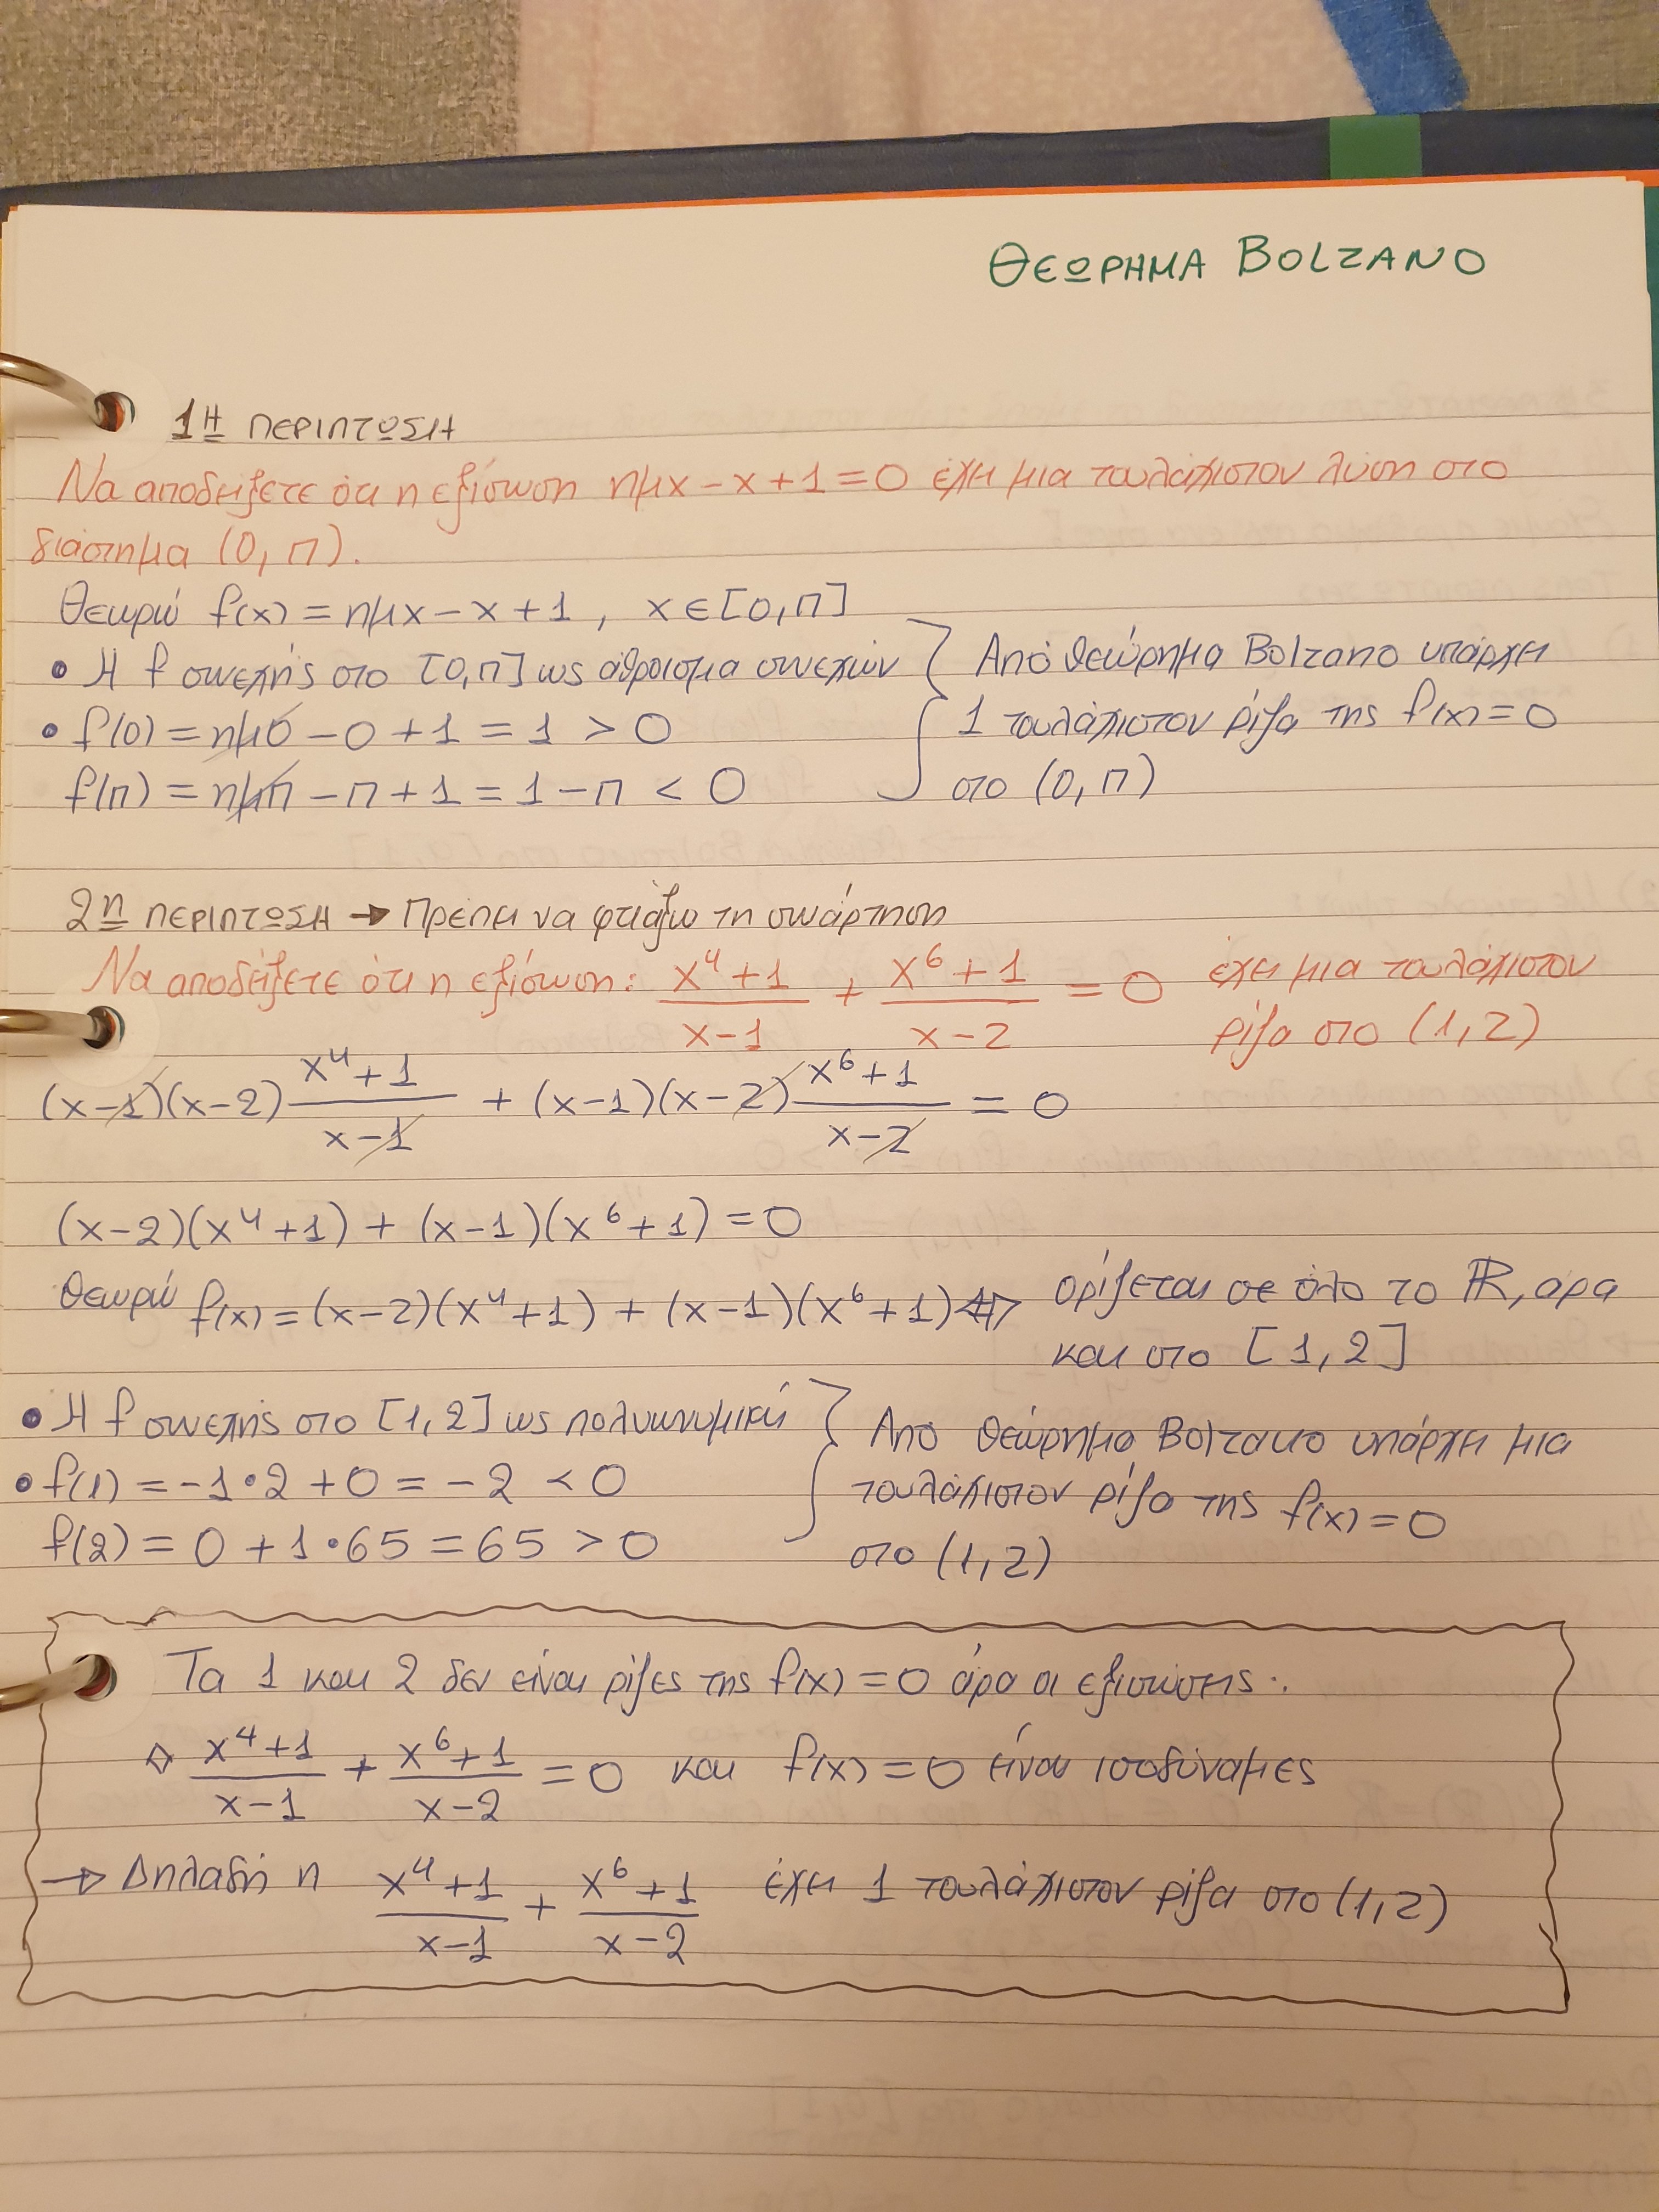 ΘΕΩΡΗΜΑ BOLZANO
1Η ΠΕΡΙΠΤΩΣΗ
Να αποδείξετε ότι η εξίσωση ημx - x + 1 = 0 έχει μια τουλάχιστον λύση στο
διάστημα (0, π).
Θεωρώ f(x) = ημx - x + 1 , x ∈ [0, π]
• Η f συνεχής στο [0, π] ως άθροισμα συνεχών } Από θεώρημα Bolzano υπάρχει
• f(0) = ημ0 - 0 + 1 = 1 > 0 1 τουλάχιστον ρίζα της f(x) = 0
f(π) = ημπ - π + 1 = 1 - π < 0 στο (0, π)
2η ΠΕΡΙΠΤΩΣΗ → Πρέπει να φτιάξω τη συνάρτηση
Να αποδείξετε ότι η εξίσωση: (x⁴+1)/(x-1) + (x⁶+1)/(x-2) = 0 έχει μια τουλάχιστον
ρίζα στο (1,2)
(x-1)(x-2) (x⁴+1)/(x-1) + (x-1)(x-2) (x⁶+1)/(x-2) = 0
(x-2)(x⁴+1) + (x-1)(x⁶+1) = 0
Θεωρώ f(x) = (x-2)(x⁴+1) + (x-1)(x⁶+1) ορίζεται σε όλο το ℝ, αρα
και στο [1,2]
• Η f συνεχής στο [1,2] ως πολυωνυμική } Από θεώρημα Bolzano υπάρχει μια
• f(1) = -1•2 + 0 = -2 < 0 τουλάχιστον ρίζα της f(x) = 0
f(2) = 0 + 1•65 = 65 > 0 στο (1,2)
Τα 1 και 2 δεν είναι ρίζες της f(x) = 0 άρα οι εξισώσεις:
◇ (x⁴+1)/(x-1) + (x⁶+1)/(x-2) = 0 και f(x) = 0 είναι ισοδύναμες
→ Δηλαδή η (x⁴+1)/(x-1) + (x⁶+1)/(x-2) έχει 1 τουλάχιστον ρίζα στο (1,2)